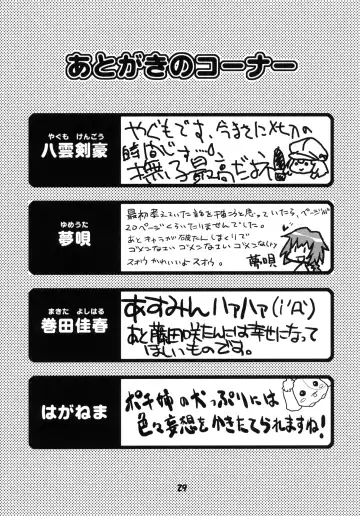 あとがきのコーナー
やくも けんごう
八雲剣豪
やぐもです、今まさに〆切の
時間です…♡
撫子最高だお!
ゆめうた
夢唄
最初考えていた話を描こうと思っていたら、ページが
20ページくらいたりませんでした。
あとキャラが破たんしまくりで
ゴメンなさい ゴメンなさい ゴメンなさい
スオウ かわいいよ スオウ。
夢唄
まきた よしはる
巻田佳春
あすみんハァハァ(;´Д`)
あと藤田咲たんには幸せになって
ほしいものです。
はがねま
ポチ姉の犬っぷりには
色々妄想をかきたてられますね!
29